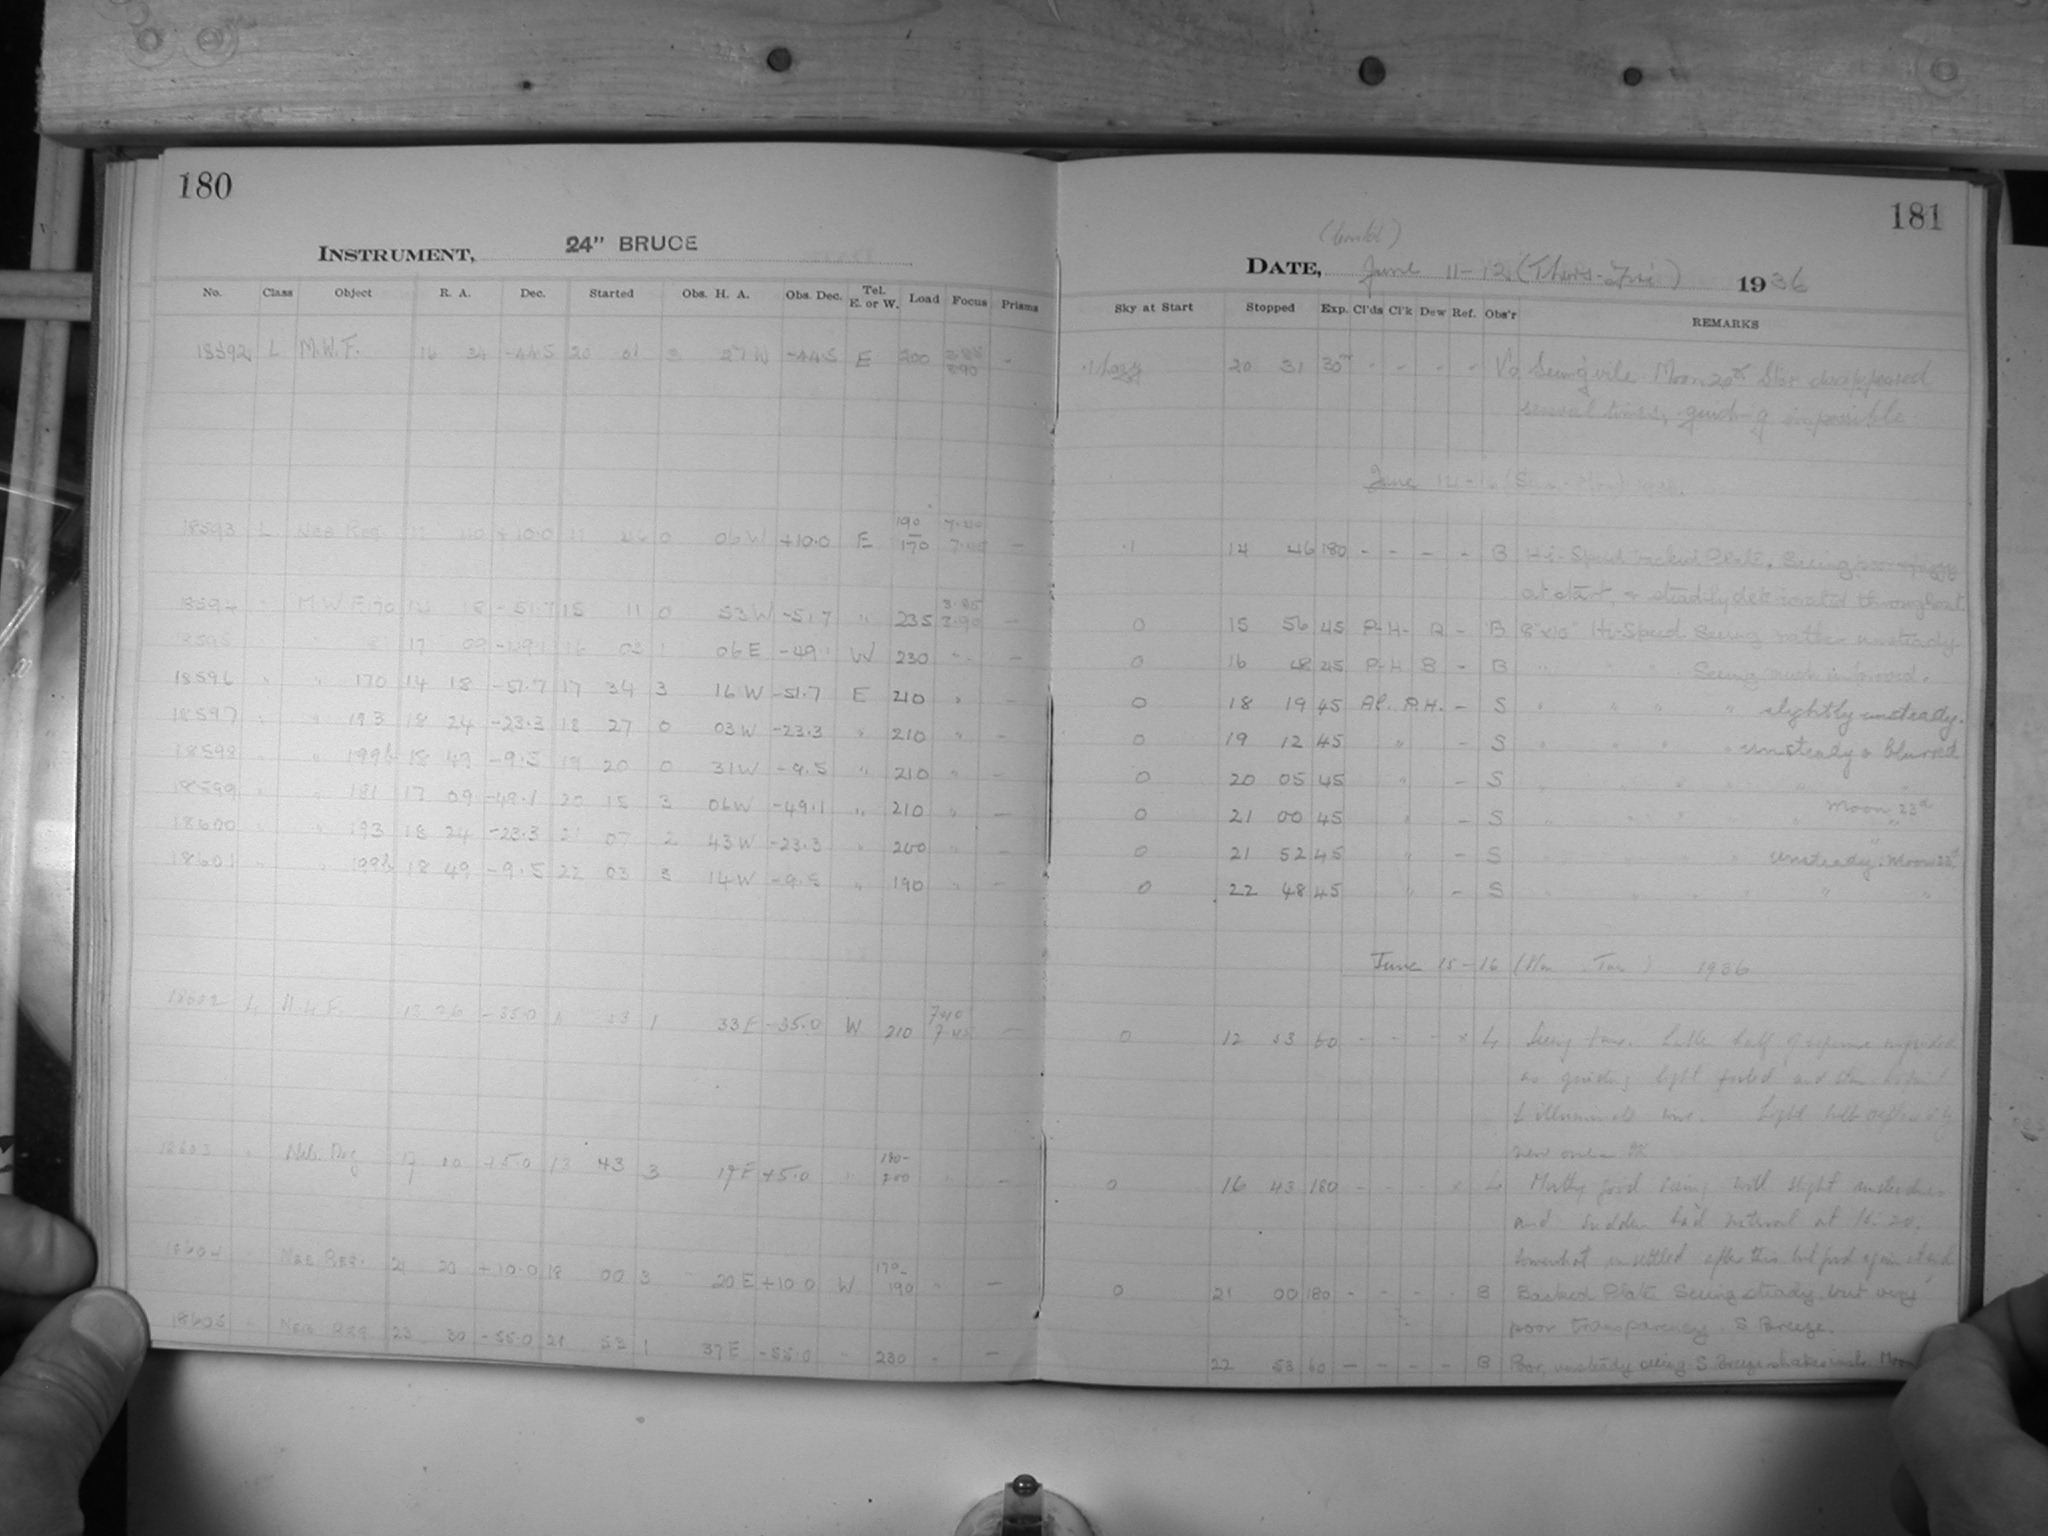 180
INSTRUMENT, 24" BRUCE
No. Class Object R. A. Dec. Started Obs. H. A. Obs. Dec. Tel. E. or W. Load Focus Prisms
18592 L M.W.F. 16 34 -44.5 20 01 3 27 W -44.5 E 200 3.90 -
18593 L Neb Reg. 11 40 +10.0 11 46 0 06 W +10.0 E 190 170 7.40 -
18594 " M W F 170 14 18 -51.7 15 11 0 53 W -51.7 " 235 3.85 3.90 -
18595 17 09 -49.1 16 03 1 06 E -49.1 W 230 " -
18596 " " 170 14 18 -51.7 17 34 3 16 W -51.7 E 210 " -
18597 " " 193 18 24 -23.3 18 27 0 03 W -23.3 " 210 " -
18598 " " 199b 18 49 -9.5 19 20 0 31 W -9.5 " 210 " -
18599 " " 181 17 09 -49.1 20 15 3 06 W -49.1 " 210 " -
18600 " " 193 18 24 -23.3 21 07 2 43 W -23.3 " 200 " -
18601 " " 199b 18 49 -9.5 22 03 3 14 W -9.5 " 190 " -
18602 L M.W.F. 13 26 -35.0 11 53 1 33 E -35.0 W 210 7.40 7.45 -
18603 " Neb. Reg 17 00 +5.0 13 43 3 19 E +5.0 " 180- 200 " -
18604 " Neb Reg. 21 20 +10.0 18 00 3 20 E +10.0 W 170- 190 " -
18605 " Neb Reg 23 30 -55.0 21 53 1 37 E -55.0 " 230 " -
181
(contd)
DATE, June 11-12 (Thurs-Fri) 1936
Sky at Start Stopped Exp. Cl'ds Cl'k Dew Ref. Obs'r REMARKS
.1 hazy 20 31 30m - - - - Seeing vile. Moon 20h Star disappeared
several times, guiding impossible
June 14-15 (Sun-Mon) 1936.
.1 14 46 180 - - - - B Hi-Speed backed Plate. Seeing poor
at start, & steadily deteriorated throughout.
0 15 56 45 P.H. B - B 8"x10" Hi-Speed Seeing rather unsteady.
0 16 48 45 P.H B - B " " " Seeing much improved.
0 18 19 45 Al. P.H. - S " " " " slightly unsteady.
0 19 12 45 " - S " " " " unsteady & blurred
0 20 05 45 " - S " " " " " "
0 21 00 45 " - S " " " " " Moon 23d
0 21 52 45 " - S " " " " unsteady. Moon 22d
0 22 48 45 " - S " " " " " "
June 15-16 (Mon-Tue) 1936
0 12 53 60 - - - x L Seeing fair. Latter half of exposure unguided
as guiding light failed and
to illuminate wire. Light
new one
0 16 43 180 - - - x L Mostly good seeing with slight unsteadiness
and sudden bad interval at 16:20.
Somewhat unsettled after this but good again at end
0 21 00 180 - - - - B Backed Plate Seeing steady but very
poor transparency. S Breeze.
22 53 60 - - - - B Poor, unsteady seeing. S Breeze shakes inst. Moon